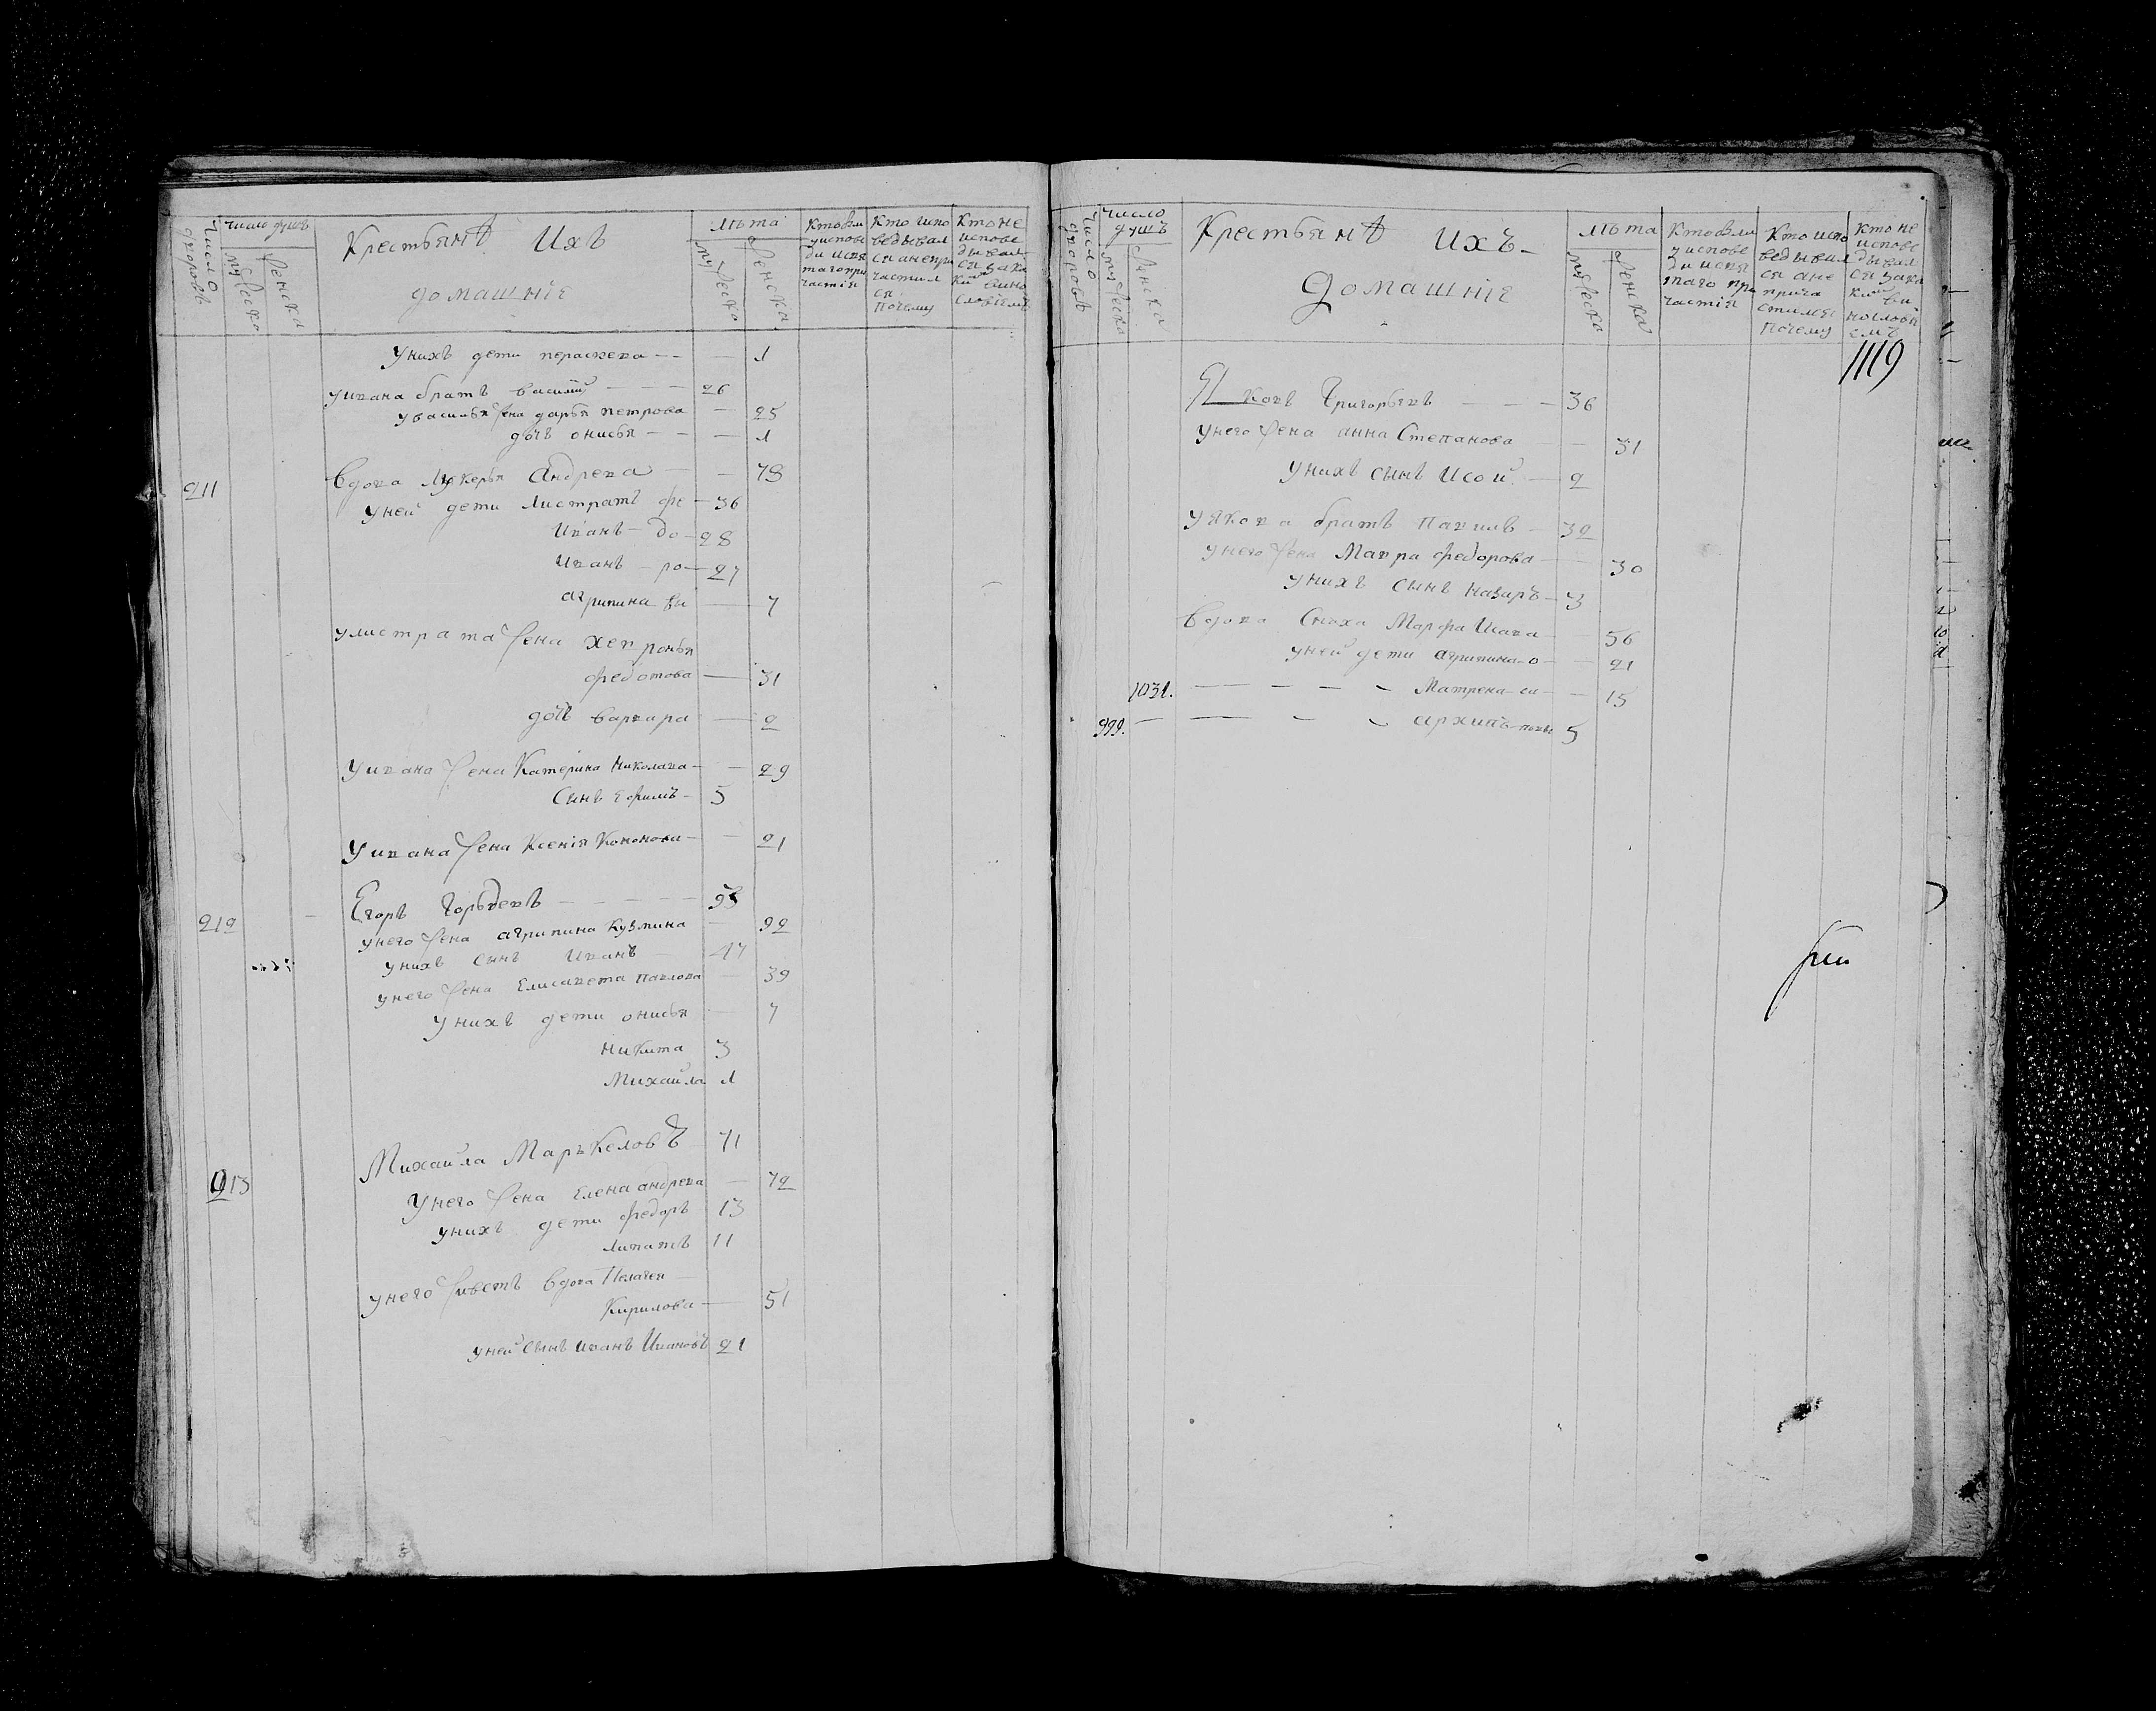 Число дворовъ
число душъ
муѕеска
женска
Крестьянѣ Ихъ
домашнiе
лѣта
муѕеска
женска
кто были
у испове
ди и свя
таго при
частiя
кто испо
ведывал
ся а не при
частил
ся
почему
кто не
испове
дывал
ся за ка
ким вино
словiемъ
у нихъ дети пераскева - - — 1
у ивана братъ василий — — — 26
у василья жена дарья петрова — 25
дочь онисья — — 1
211 вдова лукерья андрева — — 78
у ней дети листратъ — 36
иванъ — 28
иванъ — 27
агрипина — 7
у листрата жена хевронья
федотова — 31
дочь варвара — 2
у ивана жена катерина николава — — 29
сынъ ефимъ — 5
у ивана жена ксенiя кононова — — 21
212 — Егоръ — — — — 93
у него жена агрипина кузмина — 92
у нихъ сынъ иванъ — 47
у него жена елисавета павлова — 39
у нихъ дети онисья — 7
никита 3
михайла 1
213 Михайла Маръкеловъ 71
у него жена елена андрева — 72
у нихъ дети федоръ 13
липатъ 11
у него живетъ вдова пелагея —
кирилова — 51
у ней сынъ иванъ ивановъ 21
Число дворовъ
число
душъ
муѕеска
женска
Крестьянѣ ихъ
домашнiе
лѣта
муѕеска
женска
кто были
у испове
ди и свя
таго при
частiя
кто испо
ведывал
ся а не
прича
стился
почему
кто не
испове
дывал
ся за ка
ким ви
нословiе
емъ
1119
Яковъ григорьевъ — — — 36
у него жена анна степанова — 31
у нихъ сынъ исой — 2
у якова братъ павилъ — 32
у него жена мавра федорова — 30
у нихъ сынъ назаръ — 3
вдова сноха марфа исава — 56
у ней дети агрипина — 21
1031. — — — — матрена — 15
999. — — — — архипъ 5